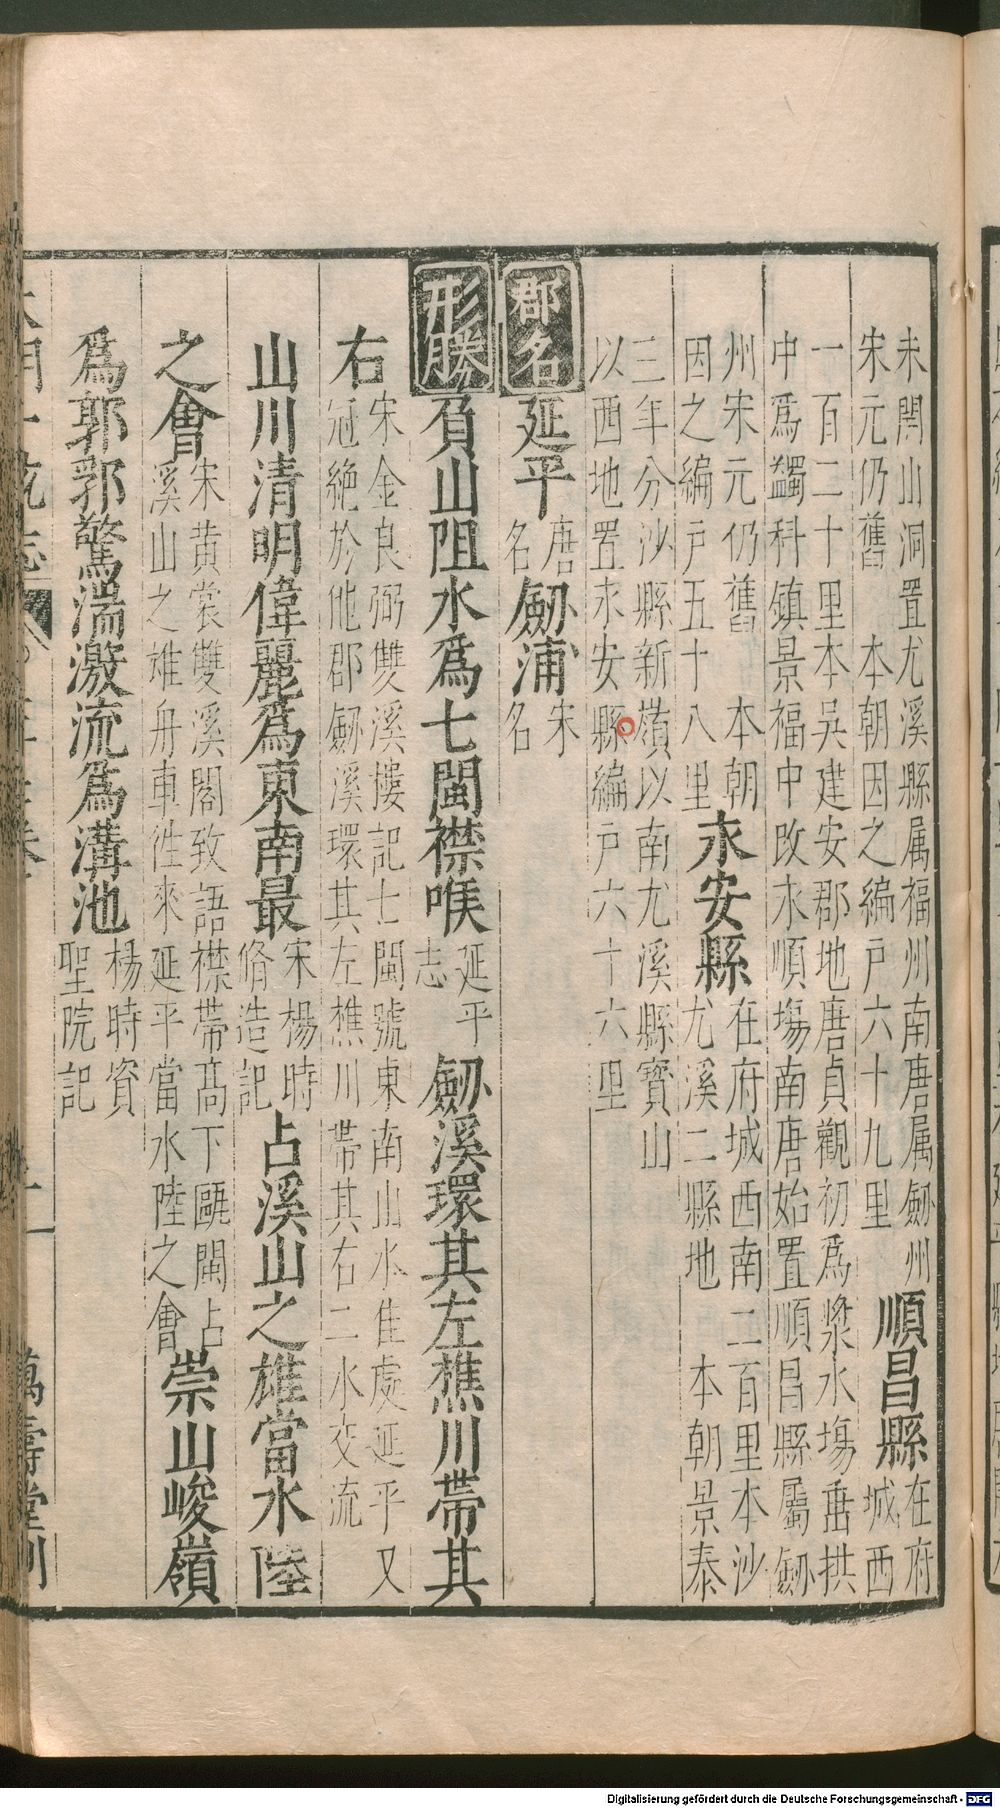 未閧山洞置尤溪縣属福州南唐属劒州
宋元仍舊　本朝因之編戶六十九里
順昌縣
在府城西
一百二十里本吳建安郡地唐貞觀初爲漿水場垂拱
中爲蠲科镇景福中改永順場南唐始置順昌縣屬劒
州宋元仍舊　本朝
因之編戶五十八里
永安縣
在府城西南二百里本沙
尤溪二縣地　本朝景泰
三年分沙縣新嶺以南尤溪縣寶山
以西地置永安縣編戶六十六里
郡名
延平唐名劒浦宋名
形勝
負山阻水爲七閩襟喉延平志劒溪環其左樵川帶其
右宋金良弼雙溪樓記七閩號東南山水佳處延平又冠絶於他郡劒溪環其左樵川帶其右二水交流
山川清明偉麗爲東南最宋楊時脩造記占溪山之雄當水陸
之會宋黄裳雙溪閣致語襟帶髙下甌閩占溪山之雄舟車徃來延平當水陸之會崇山峻嶺
爲郭郛驚湍激流爲溝池楊時資聖院記
萬壽堂刊
Digitalisierung gefördert durch die Deutsche Forschungsgemeinschaft - DFG